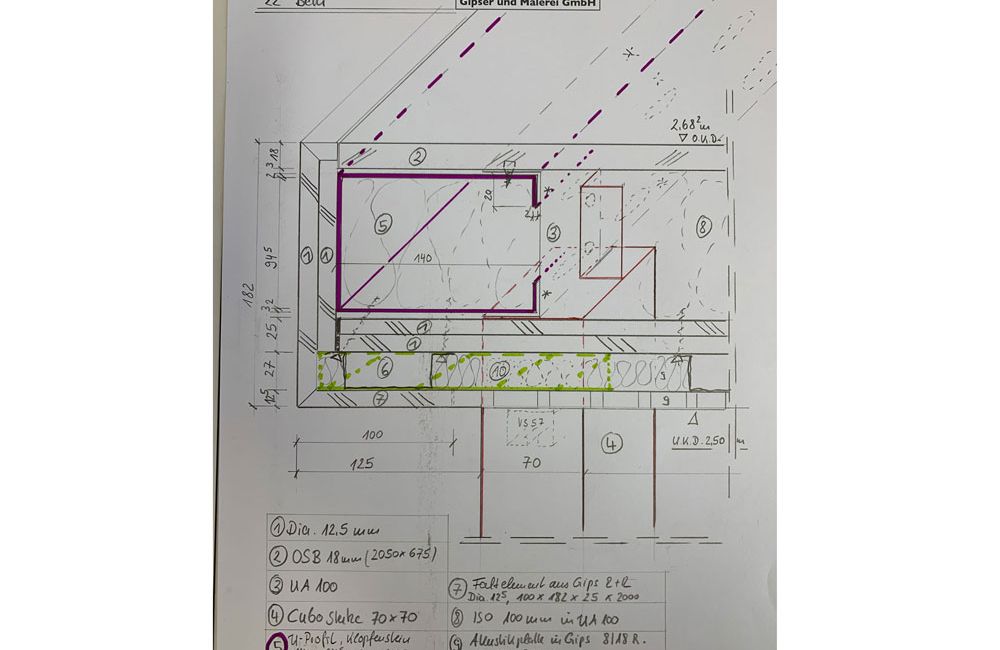 Gipser und Malerei GmbH
2.68² m
▽ O.K.D.
2
18
3
2
5
20
2
3
8
140
1
1
945
182
32
25
27
12⁵
1
1
6
10
7
9
VS 57
4
U.K.D. 2,50 m
100
125
70
① Dia. 12,5 mm
② OSB 18mm (2050 x 675)
③ UA 100
④ Cubo Stütze 70 x 70
⑤ U-Profil, Klopfenstein
⑦ Faltelement aus Gips 2+2
Dia. 12⁵, 100 x 182 x 25 x 2000
⑧ ISO 100 mm in UA 100
⑨ Akustikplatte in Gips 8/18 R.